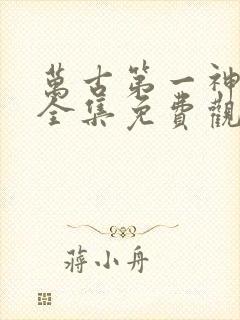 萬古第一神
全集免費觀
蔣小舟